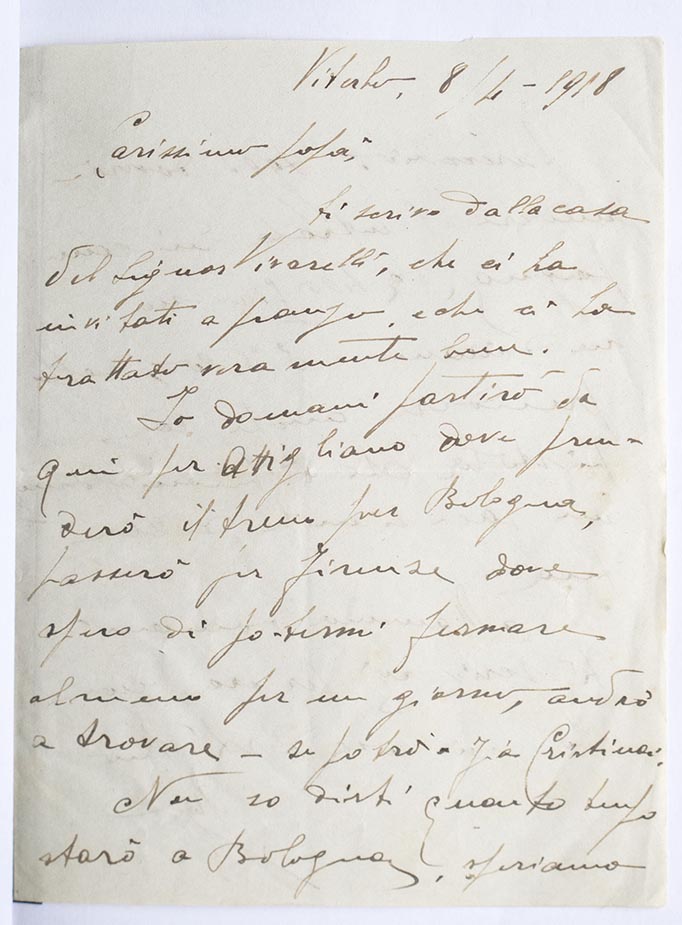 Viterbo, 8/4-1918
Carissimo papà,
ti scrivo dalla casa
del Signor Vivarelli, che ci ha
invitati a pranzo, e che ci ha
trattato veramente bene.
Io domani partirò da
qui per Attigliano dove pren-
derò il treno per Bologna,
passerò per Firenze dove
spero di potermi fermare
almeno per un giorno, andrò
a trovare - se potrò - Cristina.
Non so dirti quanto tempo
starò a Bologna, speriamo